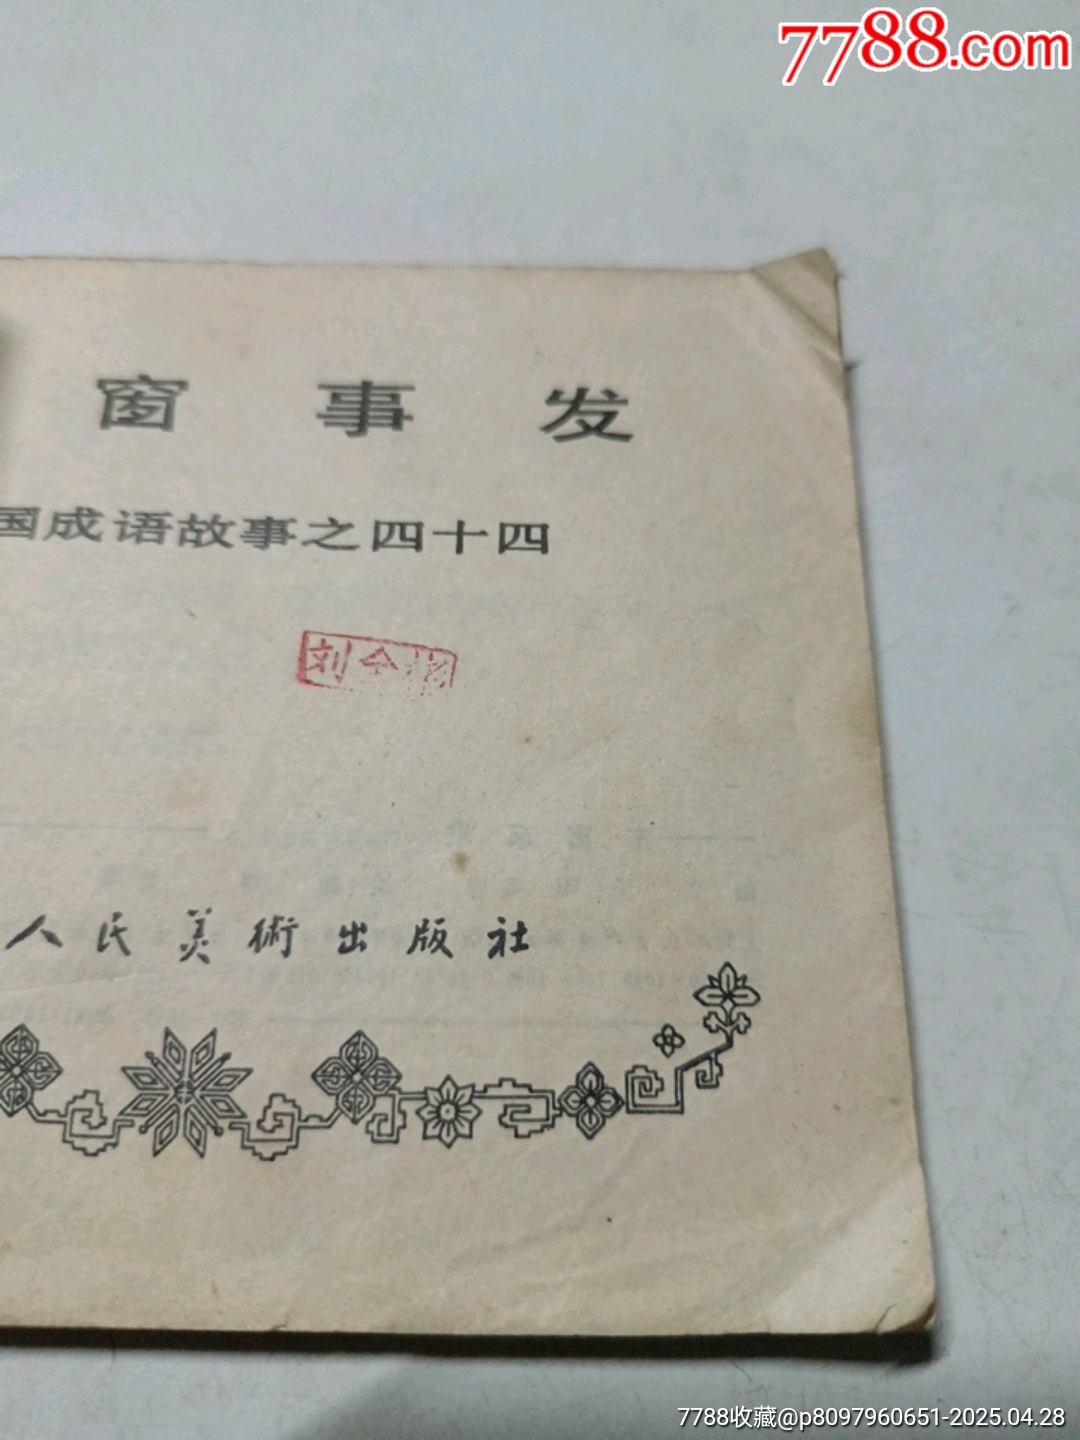 7788.com
窗事发
国成语故事之四十四
刘全
人民美術出版社
7788收藏@p8097960651-2025.04.28